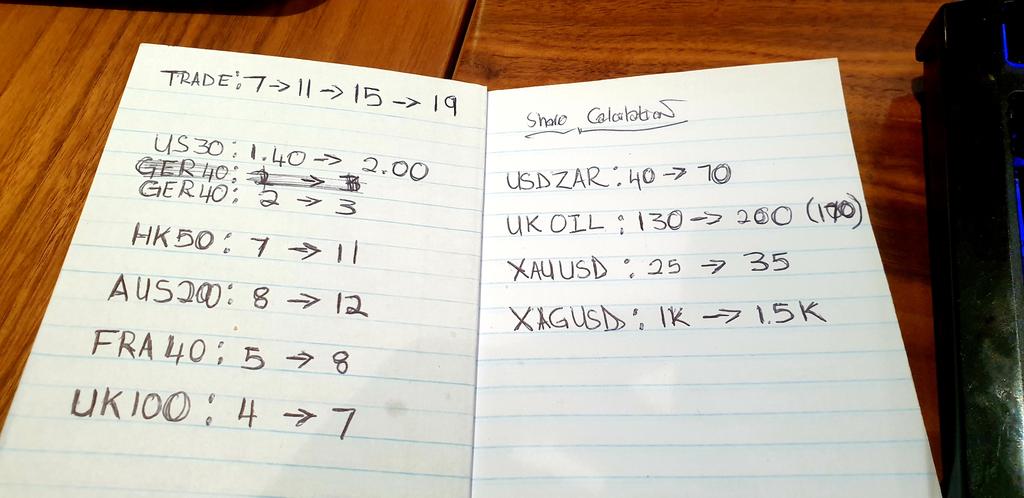 TRADE: 7 → 11 → 15 → 19
US30: 1.40 → 2.00
GER40: 2 → 3
HK50: 7 → 11
AUS200: 8 → 12
FRA40: 5 → 8
UK100: 4 → 7
Share Calculations
USDZAR: 40 → 70
UKOIL: 130 → 200 (170)
XAUUSD: 25 → 35
XAGUSD: 1K → 1.5K